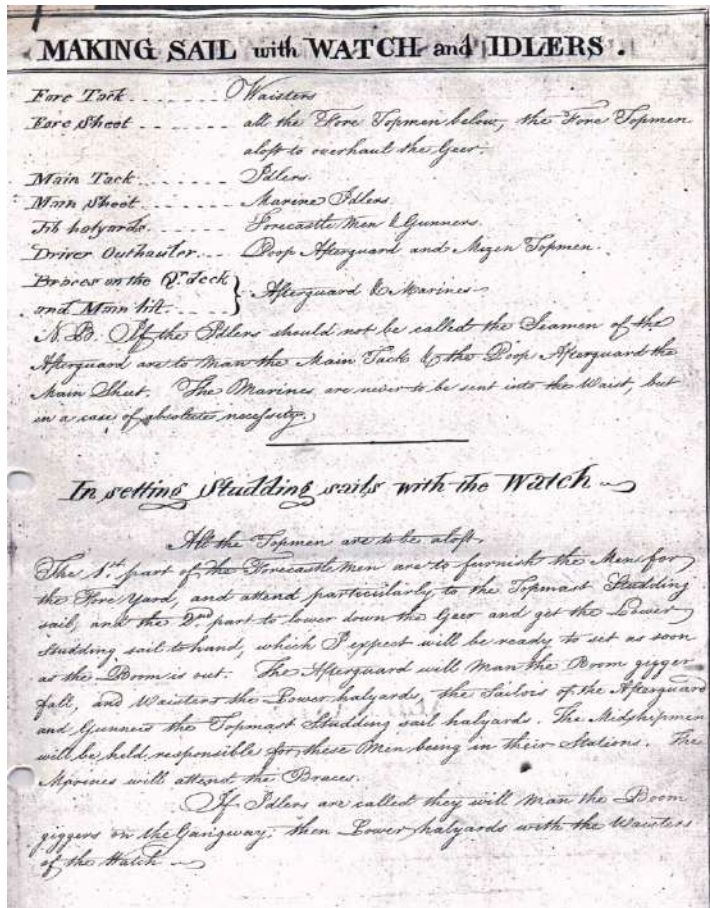 MAKING SAIL with WATCH and IDLERS.
Fore Tack........ Waisters
Fore Sheet........ all the Fore Topmen below, the Fore Topmen
aloft to overhaul the Geer.
Main Tack........ Idlers.
Main Sheet........ Marine Idlers.
Jib halyards........ Forecastle Men & Gunners.
Driver Outhauler... Poop Afterguard and Mizen Topmen.
Braces on the Qr. deck
and Main lift.... } Afterguard & Marines
N.B. If the Idlers should not be called the Seamen of the
Afterguard are to Man the Main Tack & the Poop Afterguard the
Main Sheet. The Marines are never to be sent into the Waist, but
in a case of absolute necessity
In setting Studding sails with the Watch
All the Topmen are to be aloft.
The 1st. part of the Forecastle men are to furnish the Men for
the Fore Yard, and attend particularly to the Topmast Studding
sail, and the 2nd part to lower down the Geer and get the Lower
Studding sail to hand, which I expect will be ready to set as soon
as the Boom is out. The Afterguard will Man the Boom gigger
fall, and Waisters the Lower halyards, the Sailors of the Afterguard
and Gunners the Topmast Studding sail halyards. The Midshipmen
will be held responsible for these Men being in their Stations. The
Marines will attend the Braces.
If Idlers are called they will Man the Boom
giggers on the Gangway; then Lower halyards with the Waisters
of the Watch